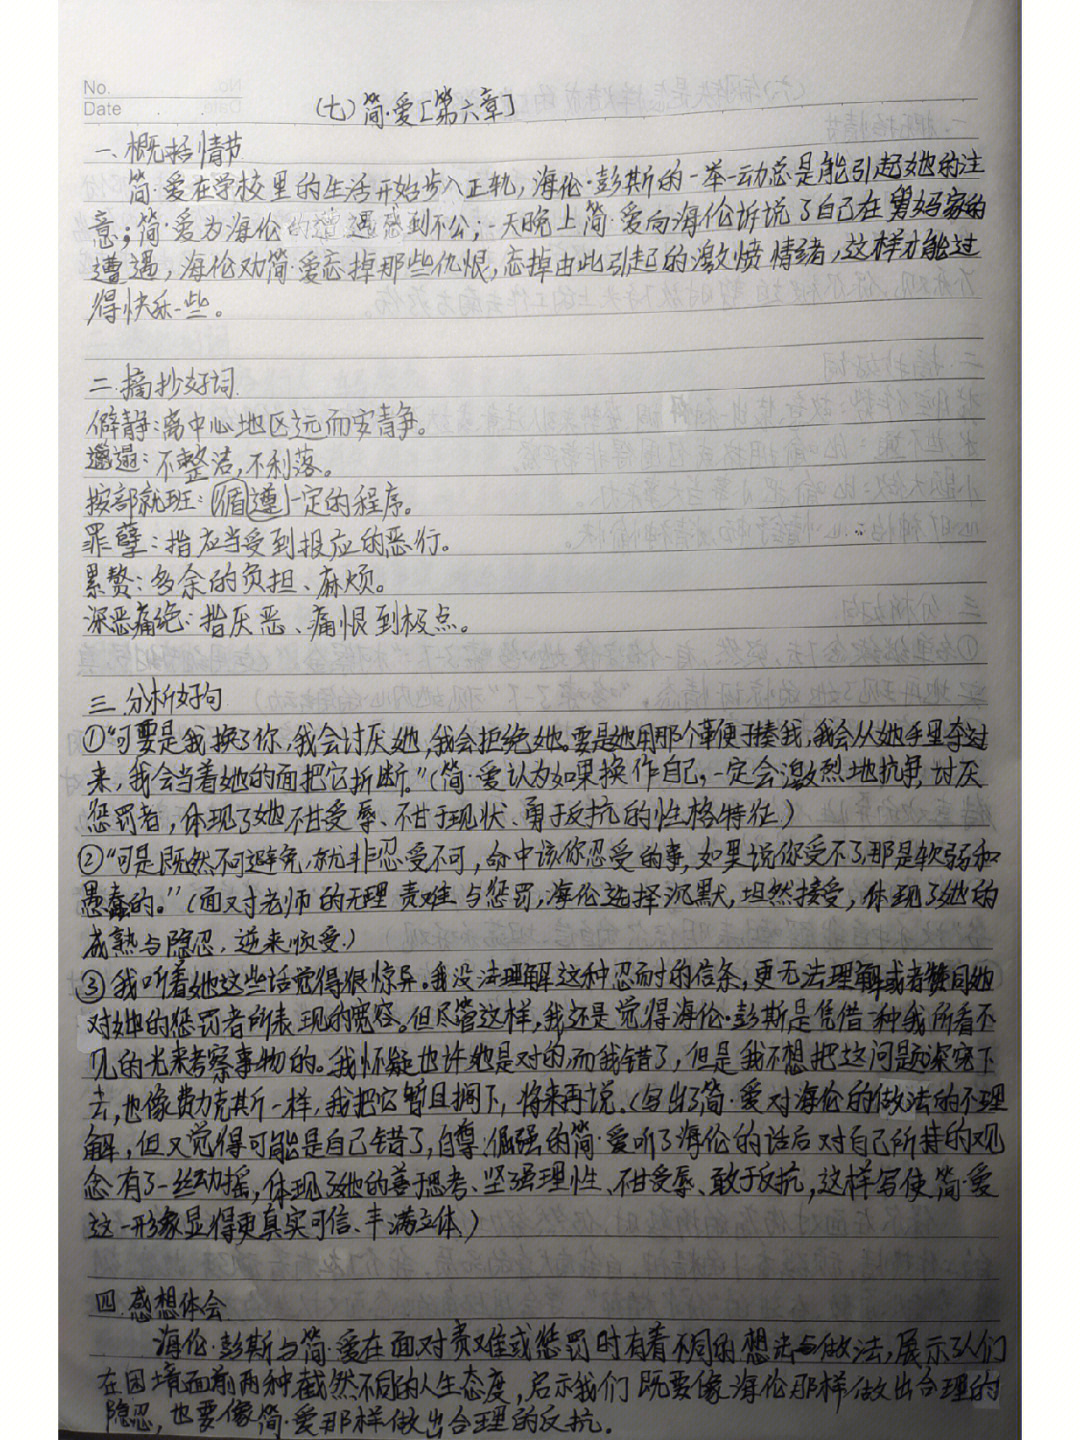 No.
Date
(七)简·爱[第六章]
一、概括情节
简·爱在学校里的生活开始步入正轨,海伦·彭斯的一举一动总是能引起她的注
意;简·爱为海伦的遭遇感到不公;一天晚上简·爱向海伦诉说了自己在舅妈家的
遭遇,海伦劝简·爱忘掉那些仇恨,忘掉由此引起的激愤情绪,这样才能过
得快乐一些。
二.摘抄好词
僻静:离中心地区远而安静。
邋遢:不整洁,不利落。
按部就班:循遵一定的程序。
罪孽:指应当受到报应的恶行。
累赘:多余的负担、麻烦。
深恶痛绝:指厌恶、痛恨到极点。
三.分析好句
①“可要是我换了你,我会讨厌她,我会拒绝她。要是她用那个鞭子揍我,我会从她手里夺过
来,我会当着她的面把它折断。”(简·爱认为如果换作自己,一定会激烈地抗争,讨厌
惩罚者,体现了她不甘受辱、不甘于现状、勇于反抗的性格特征。)
②“可是既然不可避免,就非忍受不可,命中该你忍受的事,如果说你受不了,那是软弱和
愚蠢的。”(面对老师的无理责难与惩罚,海伦选择沉默,坦然接受,体现了她的
成熟与隐忍,逆来顺受。)
③我听着她这些话觉得很惊异。我没法理解这种忍耐的信条,更无法理解或者赞同她
对她的惩罚者所表现的宽容。但尽管这样,我还是觉得海伦·彭斯是凭借一种我所看不
见的光来考察事物的。我怀疑也许她是对的,而我错了,但是我不想把这问题深究下
去,也像费力克斯一样,我把它暂且搁下,将来再说。(写出了简·爱对海伦的做法的不理
解,但又觉得可能是自己错了,自尊、倔强的简·爱听了海伦的话后对自己所持的观
念有了一丝动摇,体现了她的善于思考、坚强理性、不甘受辱、敢于反抗,这样写使简·爱
这一形象显得更真实可信、丰满立体。)
四.感想体会
海伦·彭斯与简·爱在面对责难或惩罚时有着不同的想法与做法,展示了人们
在困境面前两种截然不同的人生态度,启示我们既要像海伦那样做出合理的
隐忍,也要像简·爱那样做出合理的反抗。